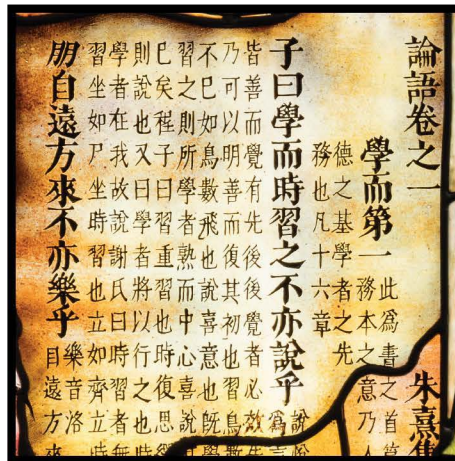 論語卷之一 朱熹集
學而第一
此爲書之首篇
務本之意乃入
德之基學者之先
務也凡十六章
子曰學而時習之不亦說乎
說
爲言
皆善而覺有先後後覺者必效先
乃可以明善而復其初也習鳥數
不已如鳥數飛也說喜意也旣學
習之則所學者熟而中心喜說其
已矣程子曰習重習也時復思繹
則說也又曰學者將以行之也時
學者在我故說謝氏曰時習者無
習坐如尸坐時習也立如齊立時
朋自遠方來不亦樂乎
樂音洛
自遠方來